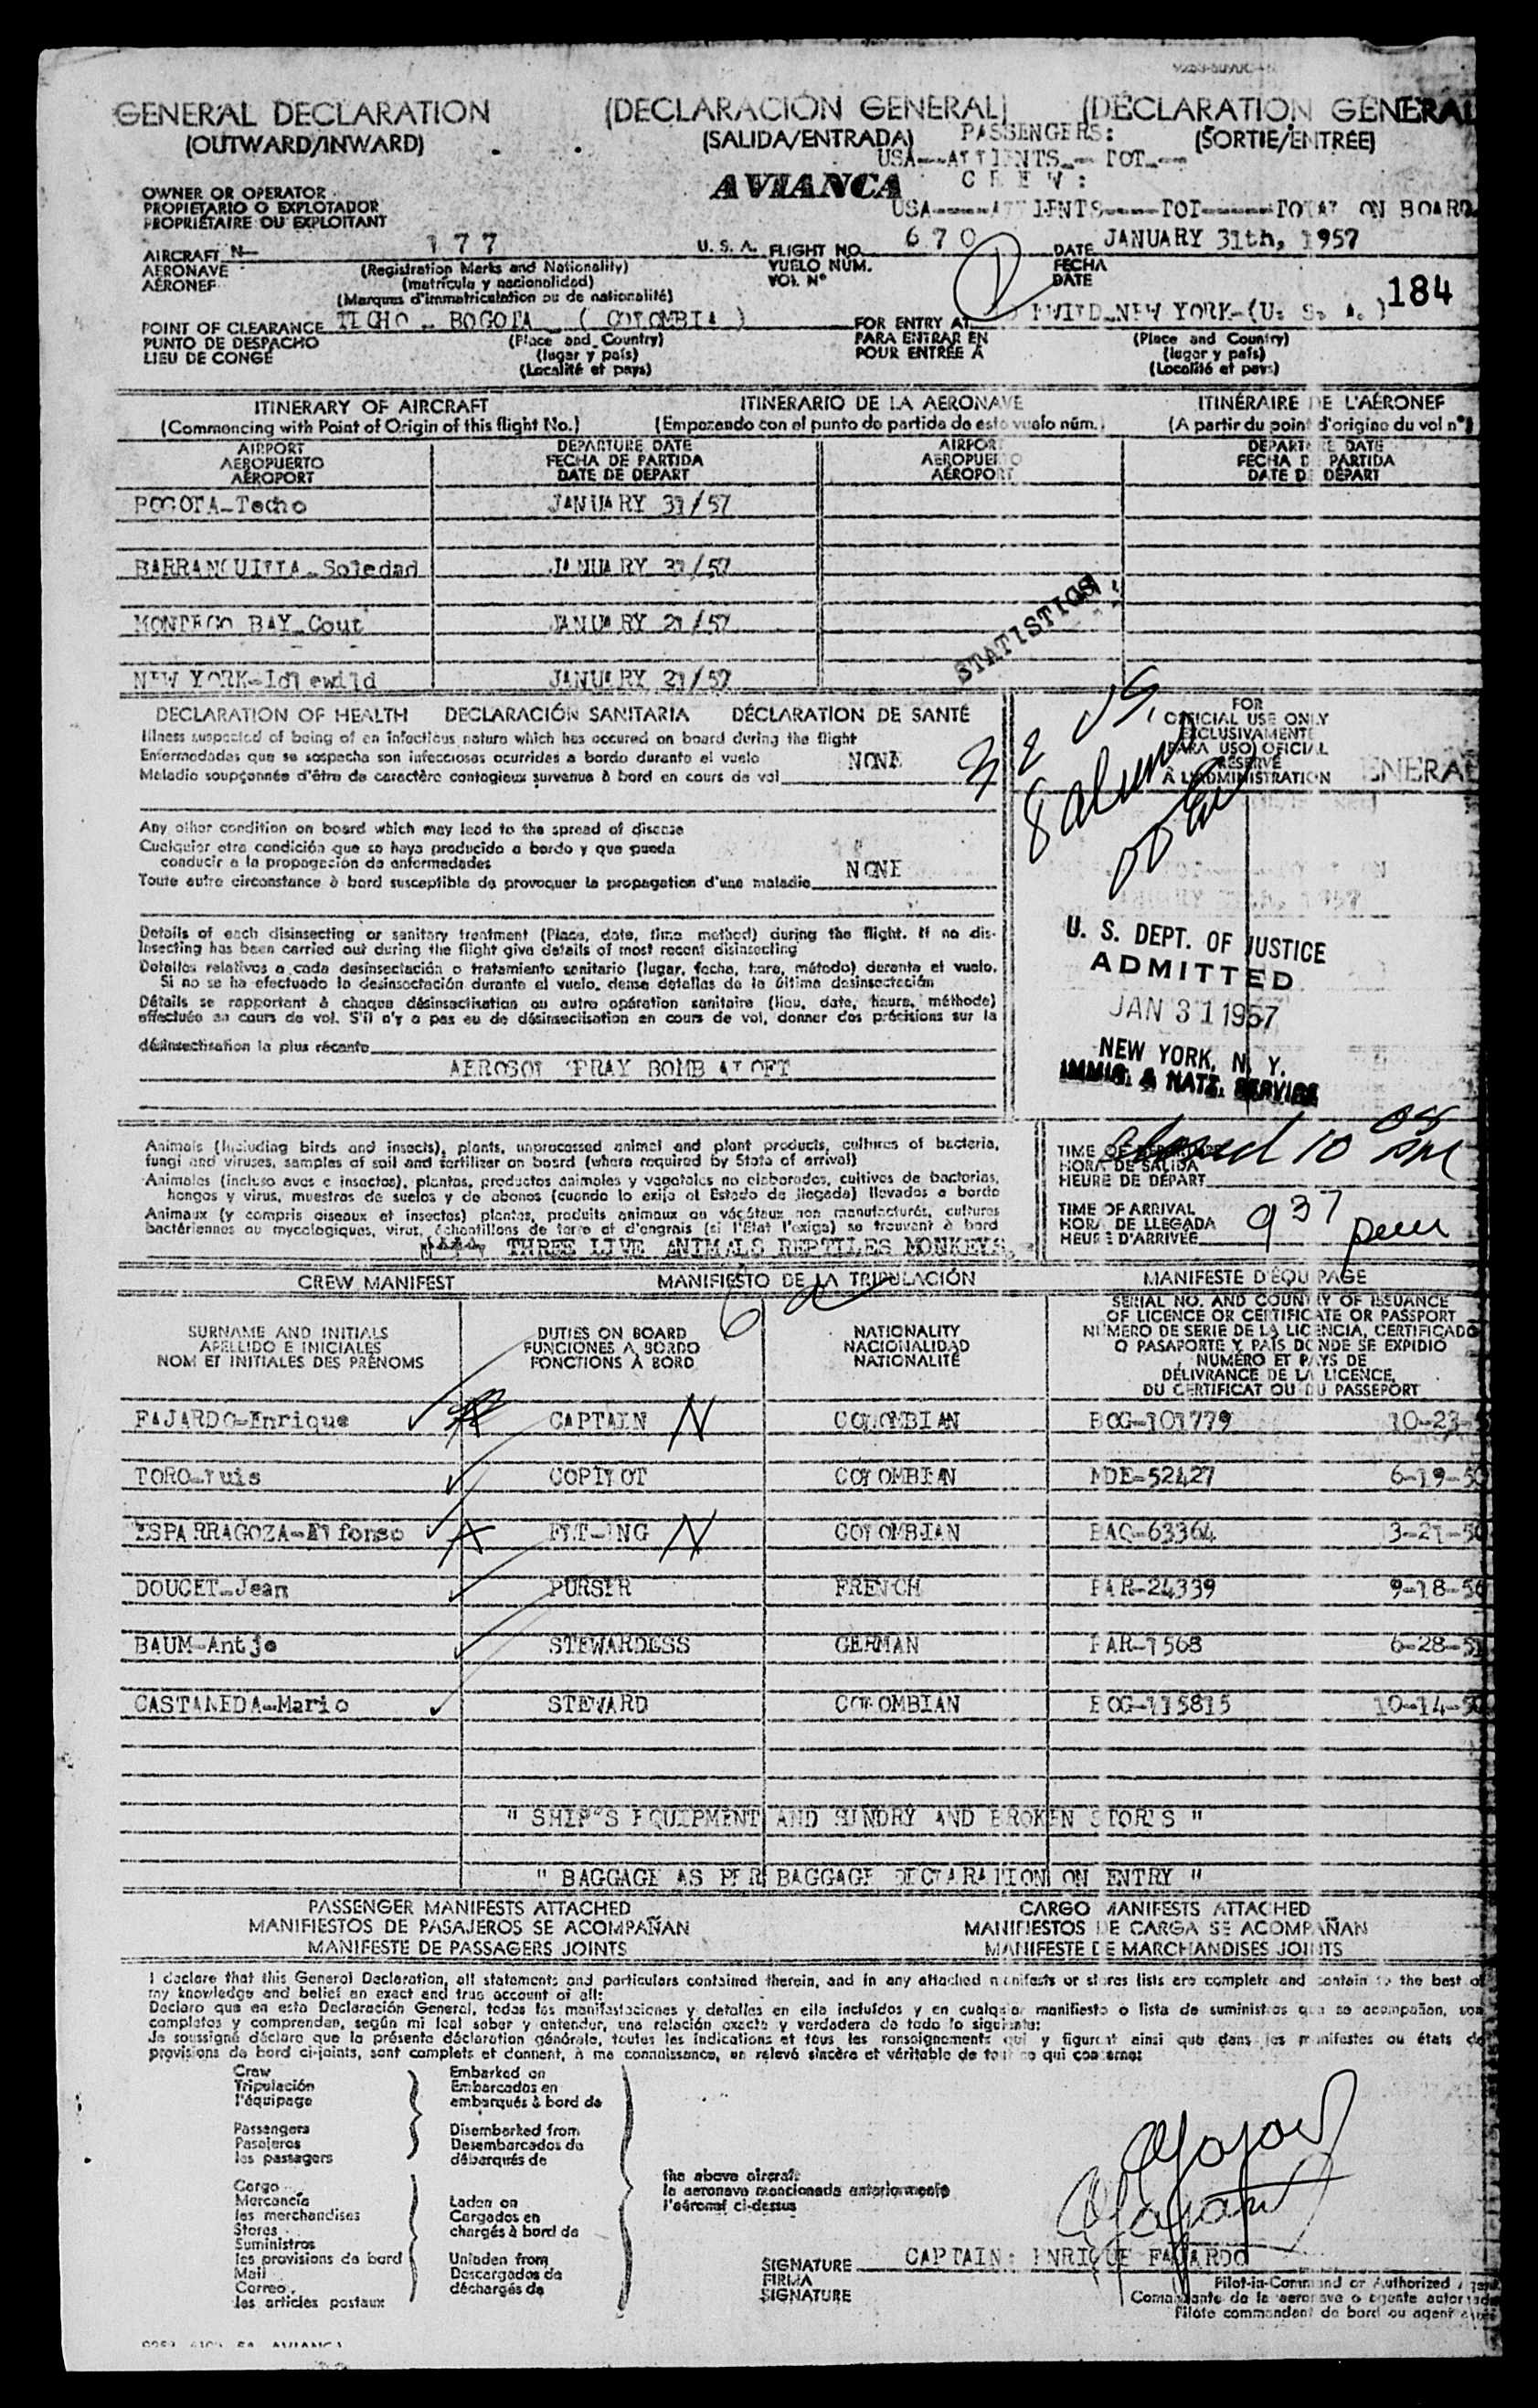 GENERAL DECLARATION (DECLARACIÓN GENERAL) (DÉCLARATION GENERAL
(OUTWARD/INWARD) (SALIDA/ENTRADA) PASSENGERS: (SORTIE/ENTRÉE)
USA--- TOT---
OWNER OR OPERATOR AVIANCA C R E W :
PROPIETARIO O EXPLOTADOR USA TOT TOTAL ON BOARD
PROPRIÉTAIRE OU EXPLOITANT
AIRCRAFT N- 177 U. S. A. FLIGHT NO. 670 DATE JANUARY 31th, 1957
AERONAVE (Registration Marks and Nationality) VUELO NÚM. FECHA
AÉRONEF (matrícula y nacionalidad) VOL Nº DATE
(Marques d'immatriculation ou de nationalité) 184
POINT OF CLEARANCE TECHO - BOGOTA ( COLOMBIA ) FOR ENTRY AT NEW YORK-(U. S. A. )
PUNTO DE DESPACHO (Place and Country) PARA ENTRAR EN (Place and Country)
LIEU DE CONGÉ (lugar y país) POUR ENTRÉE A (lugar y país)
(Localité et pays) (Localité et pays)
ITINERARY OF AIRCRAFT ITINERARIO DE LA AERONAVE ITINÉRAIRE DE L'AÉRONEF
(Commencing with Point of Origin of this flight No.) (Empezando con el punto de partida de este vuelo núm.) (A partir du point d'origine du vol nº)
AIRPORT DEPARTURE DATE AIRPORT DEPARTURE DATE
AEROPUERTO FECHA DE PARTIDA AEROPUERTO FECHA DE PARTIDA
AÉROPORT DATE DE DEPART AÉROPORT DATE DE DÉPART
BOGOTA-Techo JANUARY 31/57
BARRANQUILLA-Soledad JANUARY 31/57
MONTEGO BAY-Cout JANUARY 31/57
STATISTICS
NEW YORK-Idlewild JANUARY 31/57
DECLARATION OF HEALTH DECLARACIÓN SANITARIA DÉCLARATION DE SANTÉ FOR
Illness suspected of being of an infectious nature which has occured on board during the flight OFFICIAL USE ONLY
Enfermedades que se sospecha son infecciosas ocurridas a bordo durante el vuelo NONE EXCLUSIVAMENTE
Maladie soupçonnée d'être de caractère contagieux survenue à bord en cours de vol (PARA USO) OFICIAL
RÉSERVÉ
À L'ADMINISTRATION ENERAL
32 US
8 alums
Any other condition on board which may lead to the spread of disease
Cualquier otra condición que se haya producido a bordo y que pueda
conducir a la propagación de enfermedades
Toute autre circonstance à bord susceptible de provoquer la propagation d'une maladie NONE
Details of each disinsecting or sanitary treatment (Place, date, time method) during the flight. If no dis-
insecting has been carried out during the flight give details of most recent disinsecting
Detalles relativos a cada desinsectación o tratamiento sanitario (lugar, fecha, hora, método) durante el vuelo.
Si no se ha efectuado la desinsectación durante el vuelo, dense detalles de la última desinsectación
Détails se rapportant à chaque désinsectisation ou autre opération sanitaire (lieu, date, heure, méthode)
effectuée en cours de vol. S'il n'y a pas eu de désinsectisation en cours de vol, donner des précisions sur la
désinsectisation la plus récente
AEROSOL SPRAY BOMB ALOFT
U. S. DEPT. OF JUSTICE
ADMITTED
JAN 31 1957
NEW YORK, N. Y.
IMMIG. & NATZ. SERVICE
Animals (Including birds and insects), plants, unprocessed animal and plant products, cultures of bacteria,
fungi and viruses, samples of soil and fertilizer on board (where required by State of arrival)
Animales (incluso aves e insectos), plantas, productos animales y vegetales no elaborados, cultivos de bacterias,
hongos y virus, muestras de suelos y de abonos (cuando lo exija el Estado de llegada) llevados a bordo
Animaux (y compris oiseaux et insectes) plantes, produits animaux ou végétaux non manufacturés, cultures
bactériennes ou mycologiques, virus, échantillons de terre et d'engrais (si l'Etat l'exige) se trouvant à bord
THREE LIVE ANIMALS REPTILES MONKEYS
TIME OF closed 10 05 pm
HORA DE SALIDA
HEURE DE DÉPART
TIME OF ARRIVAL
HORA DE LLEGADA 9 37 pm
HEURE D'ARRIVÉE
CREW MANIFEST MANIFIESTO DE LA TRIPULACIÓN MANIFESTE D'ÉQUIPAGE
6 a
SURNAME AND INITIALS DUTIES ON BOARD NATIONALITY SERIAL NO. AND COUNTRY OF ISSUANCE
APELLIDO E INICIALES FUNCIONES A BORDO NACIONALIDAD OF LICENCE OR CERTIFICATE OR PASSPORT
NOM ET INITIALES DES PRÉNOMS FONCTIONS À BORD NATIONALITÉ NÚMERO DE SERIE DE LA LICENCIA, CERTIFICADO
O PASAPORTE Y PAÍS DONDE SE EXPIDIÓ
NUMÉRO ET PAYS DE
DÉLIVRANCE DE LA LICENCE,
DU CERTIFICAT OU DU PASSEPORT
FAJARDO-Enrique CAPTAIN N COLOMBIAN BOG-101779 10-23-
TORO-Luis COPILOT COLOMBIAN MDE-52427 6-19-5
ESPARRAGOZA-Alfonso FLT-ENG N COLOMBIAN BAQ-63364 3-21-5
DOUCET-Jean PURSER FRENCH PAR-24339 9-18-56
BAUM-Antje STEWARDESS GERMAN PAR-1568 6-28-5
CASTANEDA-Mario STEWARD COLOMBIAN BOG-115815 10-14-5
" SHIP'S EQUIPMENT AND SUNDRY AND BROKEN STORES "
" BAGGAGE AS PER BAGGAGE DECLARATION ON ENTRY "
PASSENGER MANIFESTS ATTACHED CARGO MANIFESTS ATTACHED
MANIFIESTOS DE PASAJEROS SE ACOMPAÑAN MANIFIESTOS DE CARGA SE ACOMPAÑAN
MANIFESTE DE PASSAGERS JOINTS MANIFESTE DE MARCHANDISES JOINTS
I declare that this General Declaration, all statements and particulars contained therein, and in any attached manifests or stores lists are complete and contain to the best of
my knowledge and belief an exact and true account of all:
Declaro que en esta Declaración General, todas las manifestaciones y detalles en ella incluídos y en cualquier manifiesto o lista de suministros que se acompañan, son
completos y comprenden, según mi leal saber y entender, una relación exacta y verdadera de todo lo siguiente:
Je soussigné déclare que la présente déclaration générale, toutes les indications et tous les renseignements qui y figurent ainsi que dans les manifestes ou états de
provisions de bord ci-joints, sont complets et donnent, à ma connaissance, un relevé sincère et véritable de tout ce qui concerne:
Crew Embarked on
Tripulación Embarcados en
l'équipage embarqués à bord de
Passengers Disembarked from
Pasajeros Desembarcados de
les passagers débarqués de
the above aircraft
la aeronave mencionada anteriormente
l'aéronef ci-dessus
Cargo
Mercancía Laden on
les merchandises Cargados en
Stores chargés à bord de
Suministros
les provisions de bord Unladen from
Mail Descargados de
Correo déchargés de
les articles postaux
SIGNATURE CAPTAIN: ENRIQUE FAJARDO
FIRMA Pilot-in-Command or Authorized
SIGNATURE Comandante de la aeronave o agente
Pilote commandant de bord ou agent
AVIANCA